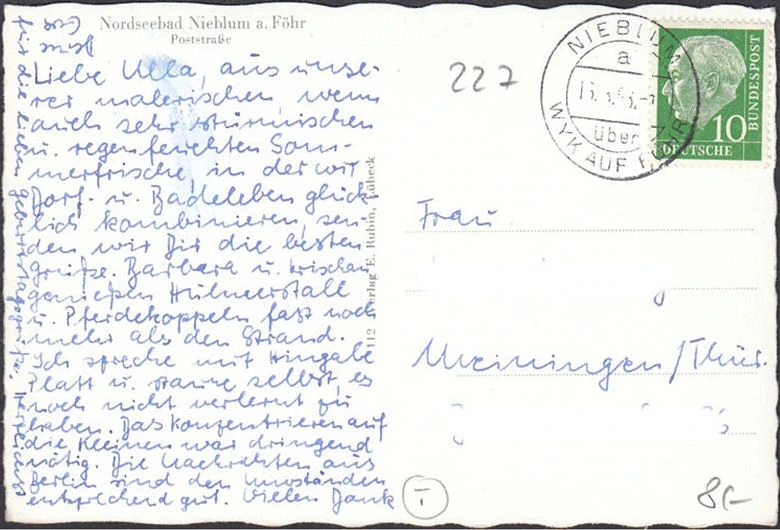 Nordseebad Nieblum a. Föhr
Poststraße
Liebe Ulla, aus unse-
rer malerischen, wenn
auch sehr stürmischen
u. regenfeuchten Som-
merfrische, in der wir
Dorf- u. Badeleben glück-
lich kombinieren, sen-
den wir Dir die besten
Grüße. Barbara u. Krischan
genießen Hühnerstall
u. Pferdekoppeln fast noch
mehr als den Strand.
Ich spreche mit Hingabe
Platt u. staune selbst, es
noch nicht verlernt zu
haben. Das Konzentrieren auf
die Kleinen war dringend
nötig. Die Nachrichten aus
Berlin sind den Umständen
entsprechend gut. Vielen Dank
für die lieben Geburtstagsgrüße. Herzlichst
112 Verlag E. Rubin, Lübeck
227
NIEBLUM
a
über
WYK AUF FÖHR
10
DEUTSCHE
BUNDESPOST
Frau
Meiningen/Thür.
I
8,-